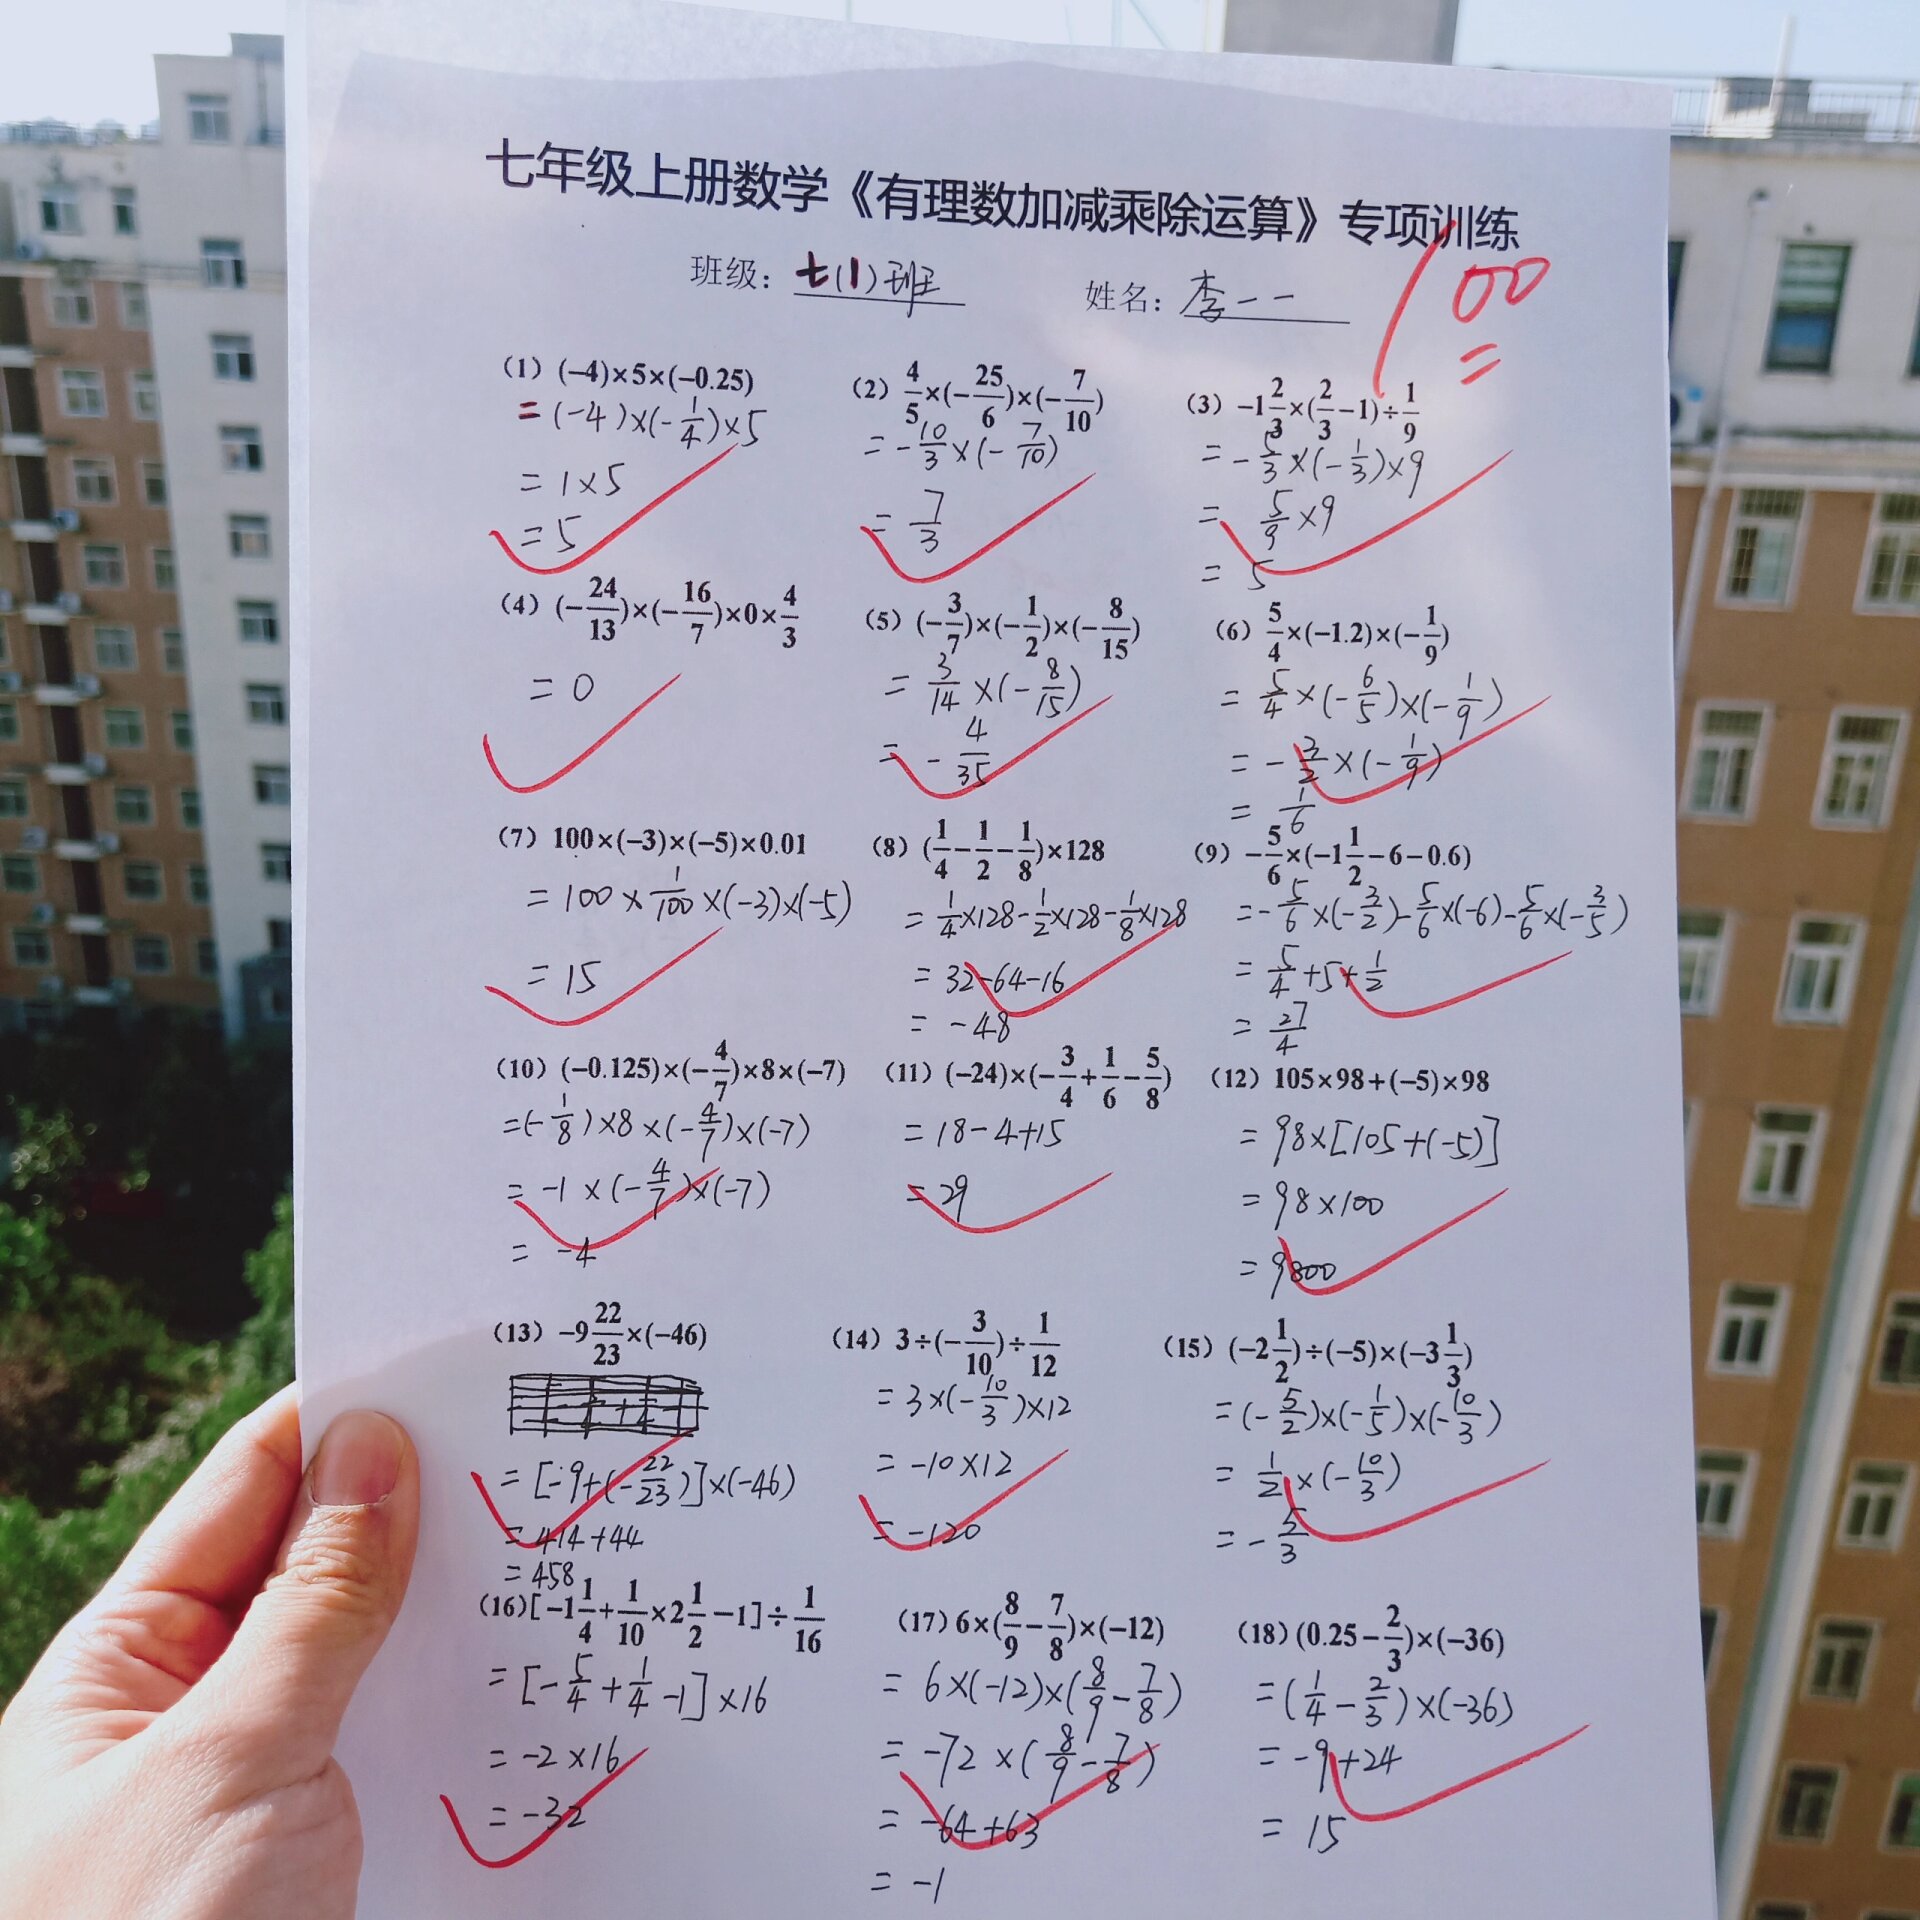 七年级上册数学《有理数加减乘除运算》专项训练
班级：七(1)班 姓名：李一一
100
(1) (-4)×5×(-0.25)
=(-4)×(-1/4)×5
=1×5
=5
(2) 4/5×(-25/6)×(-7/10)
=-10/3×(-7/10)
=7/3
(3) -1 2/3×(2/3-1)÷1/9
=-5/3×(-1/3)×9
=5/9×9
=5
(4) (-24/13)×(-16/7)×0×4/3
=0
(5) (-3/7)×(-1/2)×(-8/15)
=3/14×(-8/15)
=-4/35
(6) 5/4×(-1.2)×(-1/9)
=5/4×(-6/5)×(-1/9)
=-3/2×(-1/9)
=1/6
(7) 100×(-3)×(-5)×0.01
=100×1/100×(-3)×(-5)
=15
(8) (1/4-1/2-1/8)×128
=1/4×128-1/2×128-1/8×128
=32-64-16
=-48
(9) -5/6×(-1 1/2-6-0.6)
=-5/6×(-3/2)-5/6×(-6)-5/6×(-3/5)
=5/4+5+1/2
=27/4
(10) (-0.125)×(-4/7)×8×(-7)
=(-1/8)×8×(-4/7)×(-7)
=-1×(-4/7)×(-7)
=-4
(11) (-24)×(-3/4+1/6-5/8)
=18-4+15
=29
(12) 105×98+(-5)×98
=98×[105+(-5)]
=98×100
=9800
(13) -9 22/23×(-46)
=[-9+(-22/23)]×(-46)
=414+44
=458
(14) 3÷(-3/10)÷1/12
=3×(-10/3)×12
=-10×12
=-120
(15) (-2 1/2)÷(-5)×(-3 1/3)
=(-5/2)×(-1/5)×(-10/3)
=1/2×(-10/3)
=-5/3
(16) [-1 1/4+1/10×2 1/2-1]÷1/16
=[-5/4+1/4-1]×16
=-2×16
=-32
(17) 6×(8/9-7/8)×(-12)
=6×(-12)×(8/9-7/8)
=-72×(8/9-7/8)
=-64+63
=-1
(18) (0.25-2/3)×(-36)
=(1/4-2/3)×(-36)
=-9+24
=15